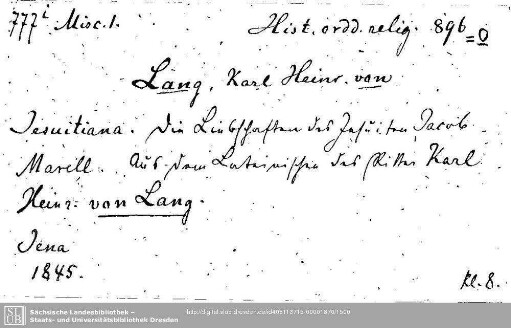 777 i Misc. 1. Hist. ordd. relig. 896 = 0
Lang, Karl Heinr. von
Jesuitiana. Die Liebschaften des Jesuiten Jacob
Marell. Aus dem Lateinischen des Ritter Karl
Heinr. von Lang.
Jena
1845.
kl. 8.
SLUB
Sächsische Landesbibliothek –
Staats- und Universitätsbibliothek Dresden